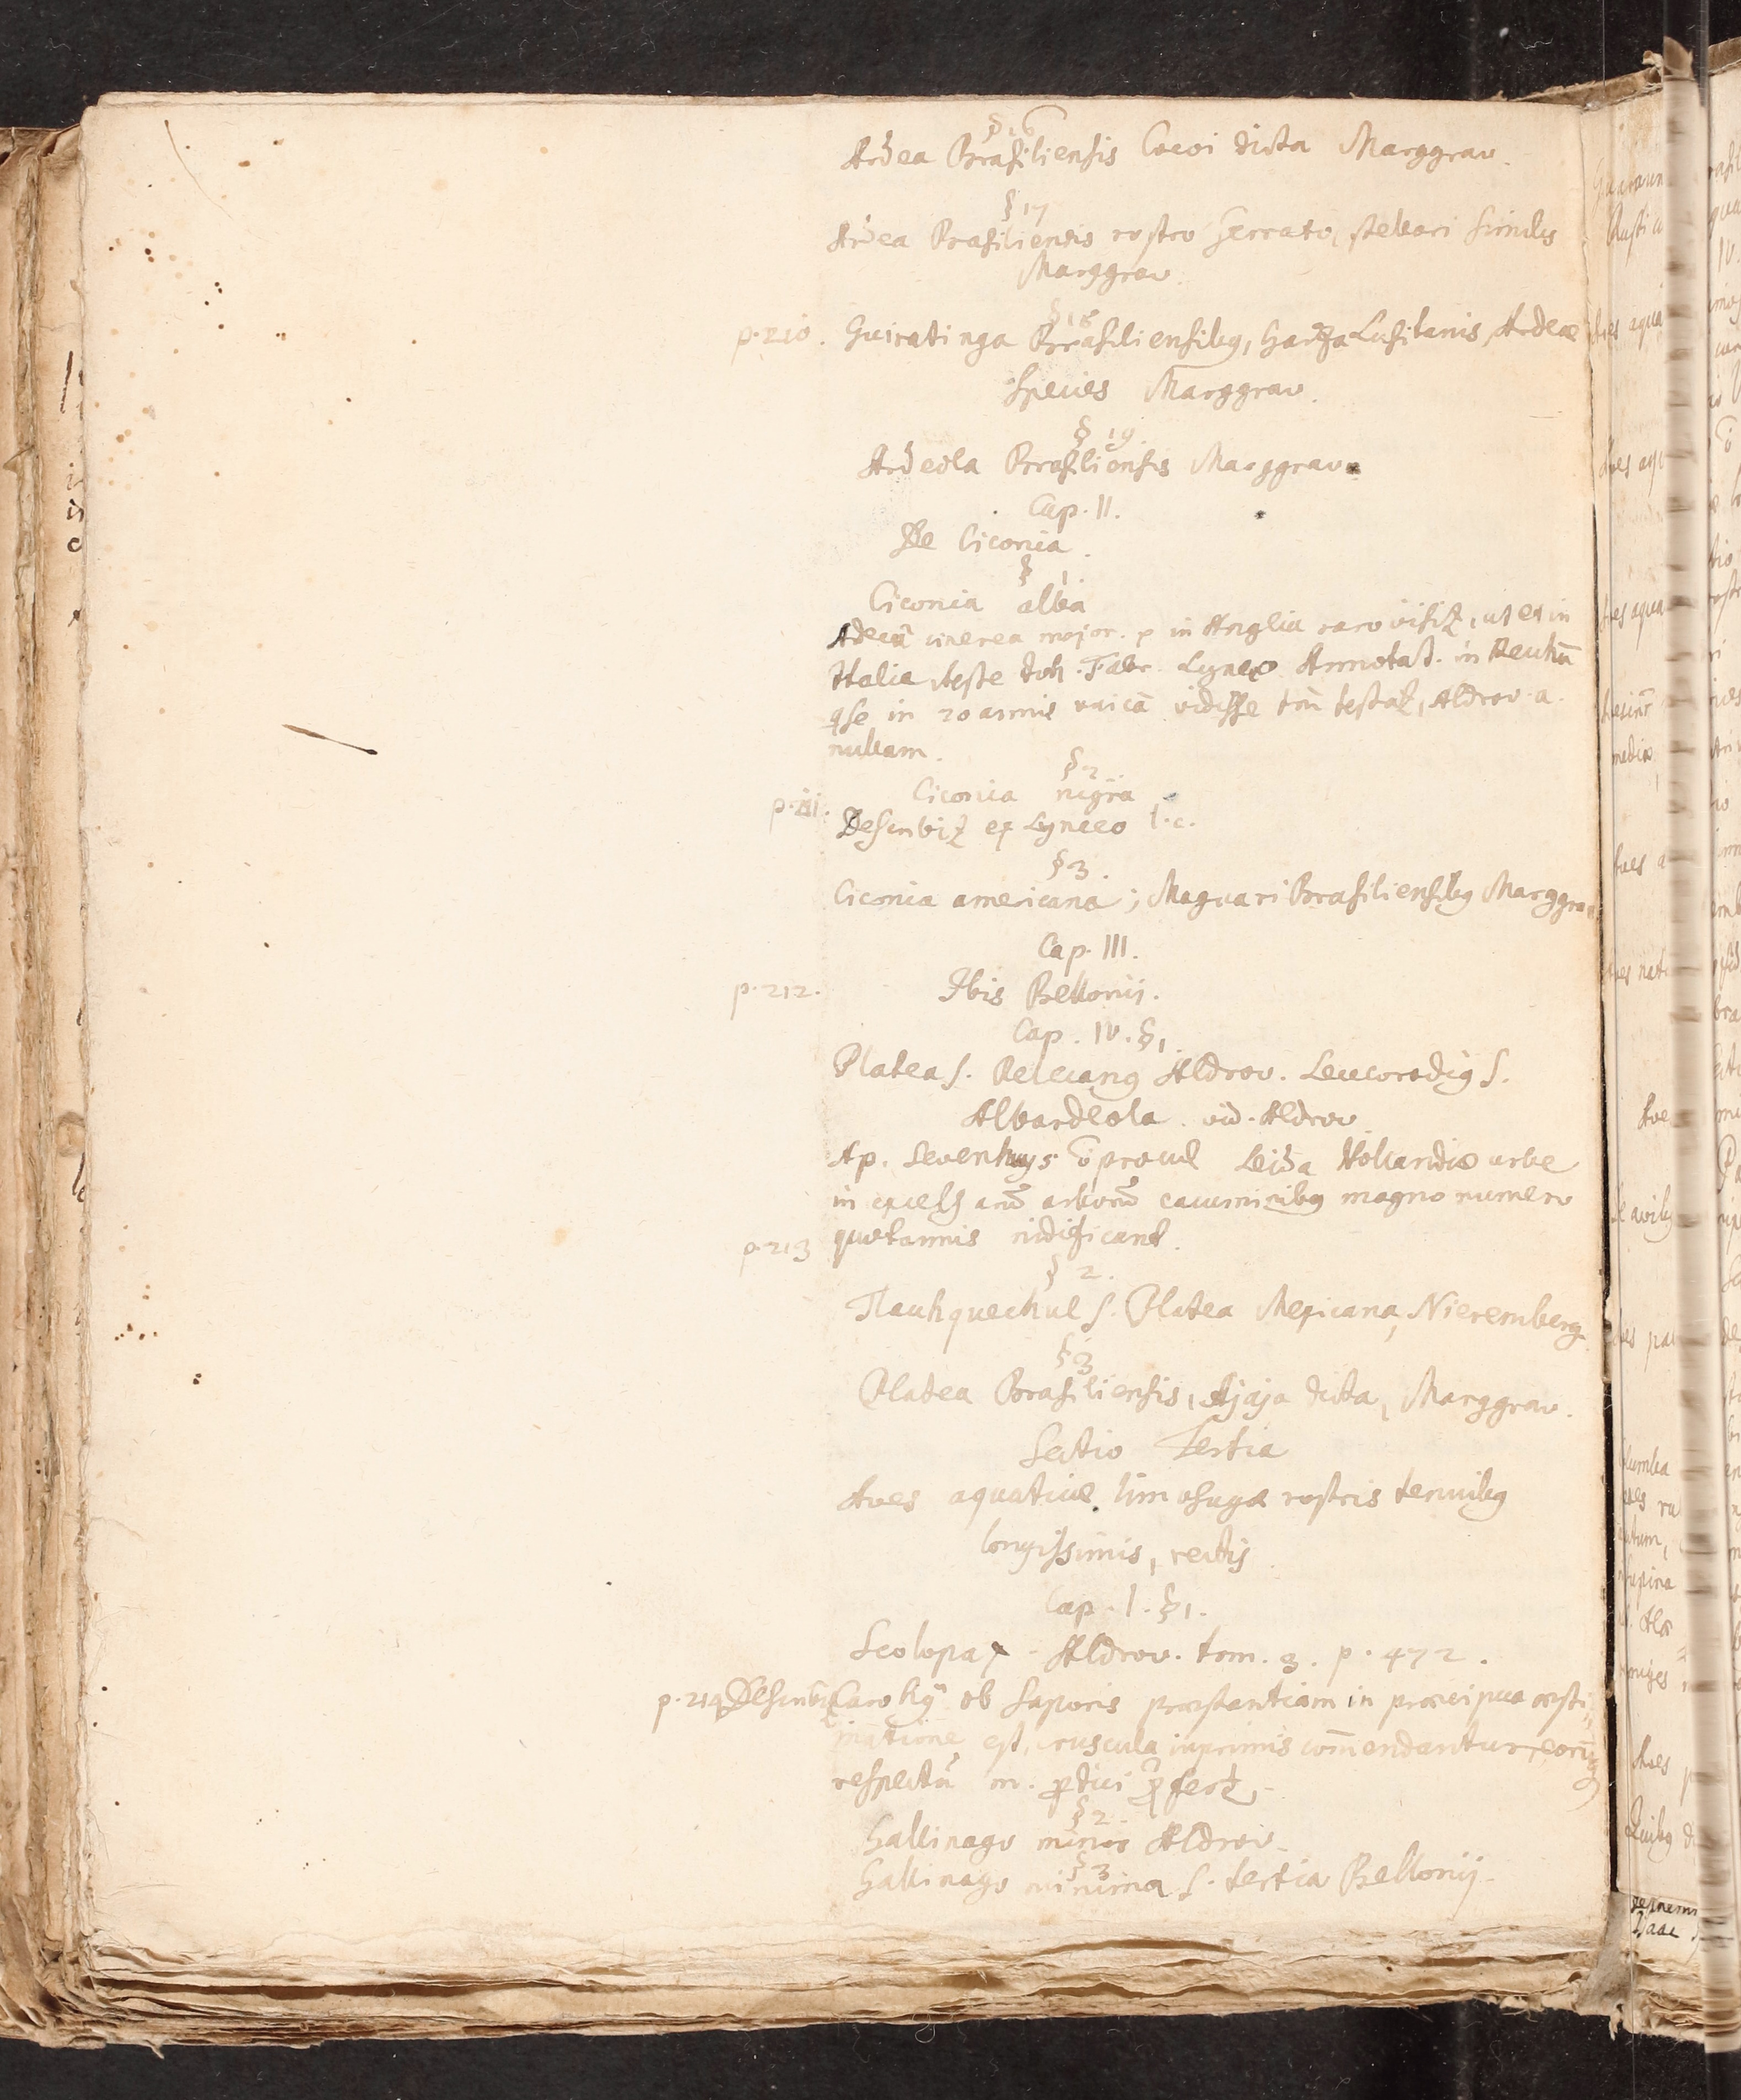 § 16
Ardea Brasiliensis Cocoi dicta Marggrav.
§ 17
Ardea Brasiliensis rostro serrato, stellari similis
Marggrav.
§ 18
p. 210. Guiratinga Brasiliensibus, Garza Lusitanis, Ardeae
species Marggrav.
§ 19.
Ardeola Brasiliensis Marggrav.
Cap. II.
De Ciconia.
§ 1.
Ciconia alba
cinerea major. in Anglia raro visit, ut et in
Italia, teste Joh. Fabr. Lynceo Annotat. in
in 20 annis unicā vidisse testat, Aldrov. a.
nullam.
§ 2.
Ciconia nigra
p. 211. Describit ex Lynceo l.c.
§ 3.
Ciconia americana; Maguari Brasiliensibus Marggrav
Cap. III.
p. 212. Ibis Bellonij.
Cap. IV. § 1.
Platea s. Pelecanus Aldrov. Leucorodius s.
Albardeola. vid. Aldrov.
Ap. Sevenhuys procul Leida Hollandiae urbe
in arborū cacuminibus magno numero
quotannis nidificant.
p. 213
§ 2.
Tlauhquechul s. Platea Mexicana, Nieremberg.
§ 3
Platea Brasiliensis, Ajaja dicta, Marggrav.
Sectio Tertia
Aves aquaticae limosugae rostris tenuibus
longissimis, rectis.
Cap. I. § 1.
Scolopax - Aldrov. tom. 3. p. 472.
p. 214 Describit Caro hujus ob saporis praestantiam in praecipua aesti-
matione est, cruscula inprimis com̄endantur, eorūq
respectū m. perdici
§ 2.
Gallinago minor Aldrov.
§ 3
Gallinago minima s. tertia Bellonij.